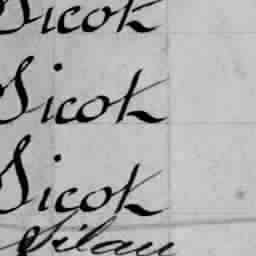 Sicot
Sicot
Sicot
Silau